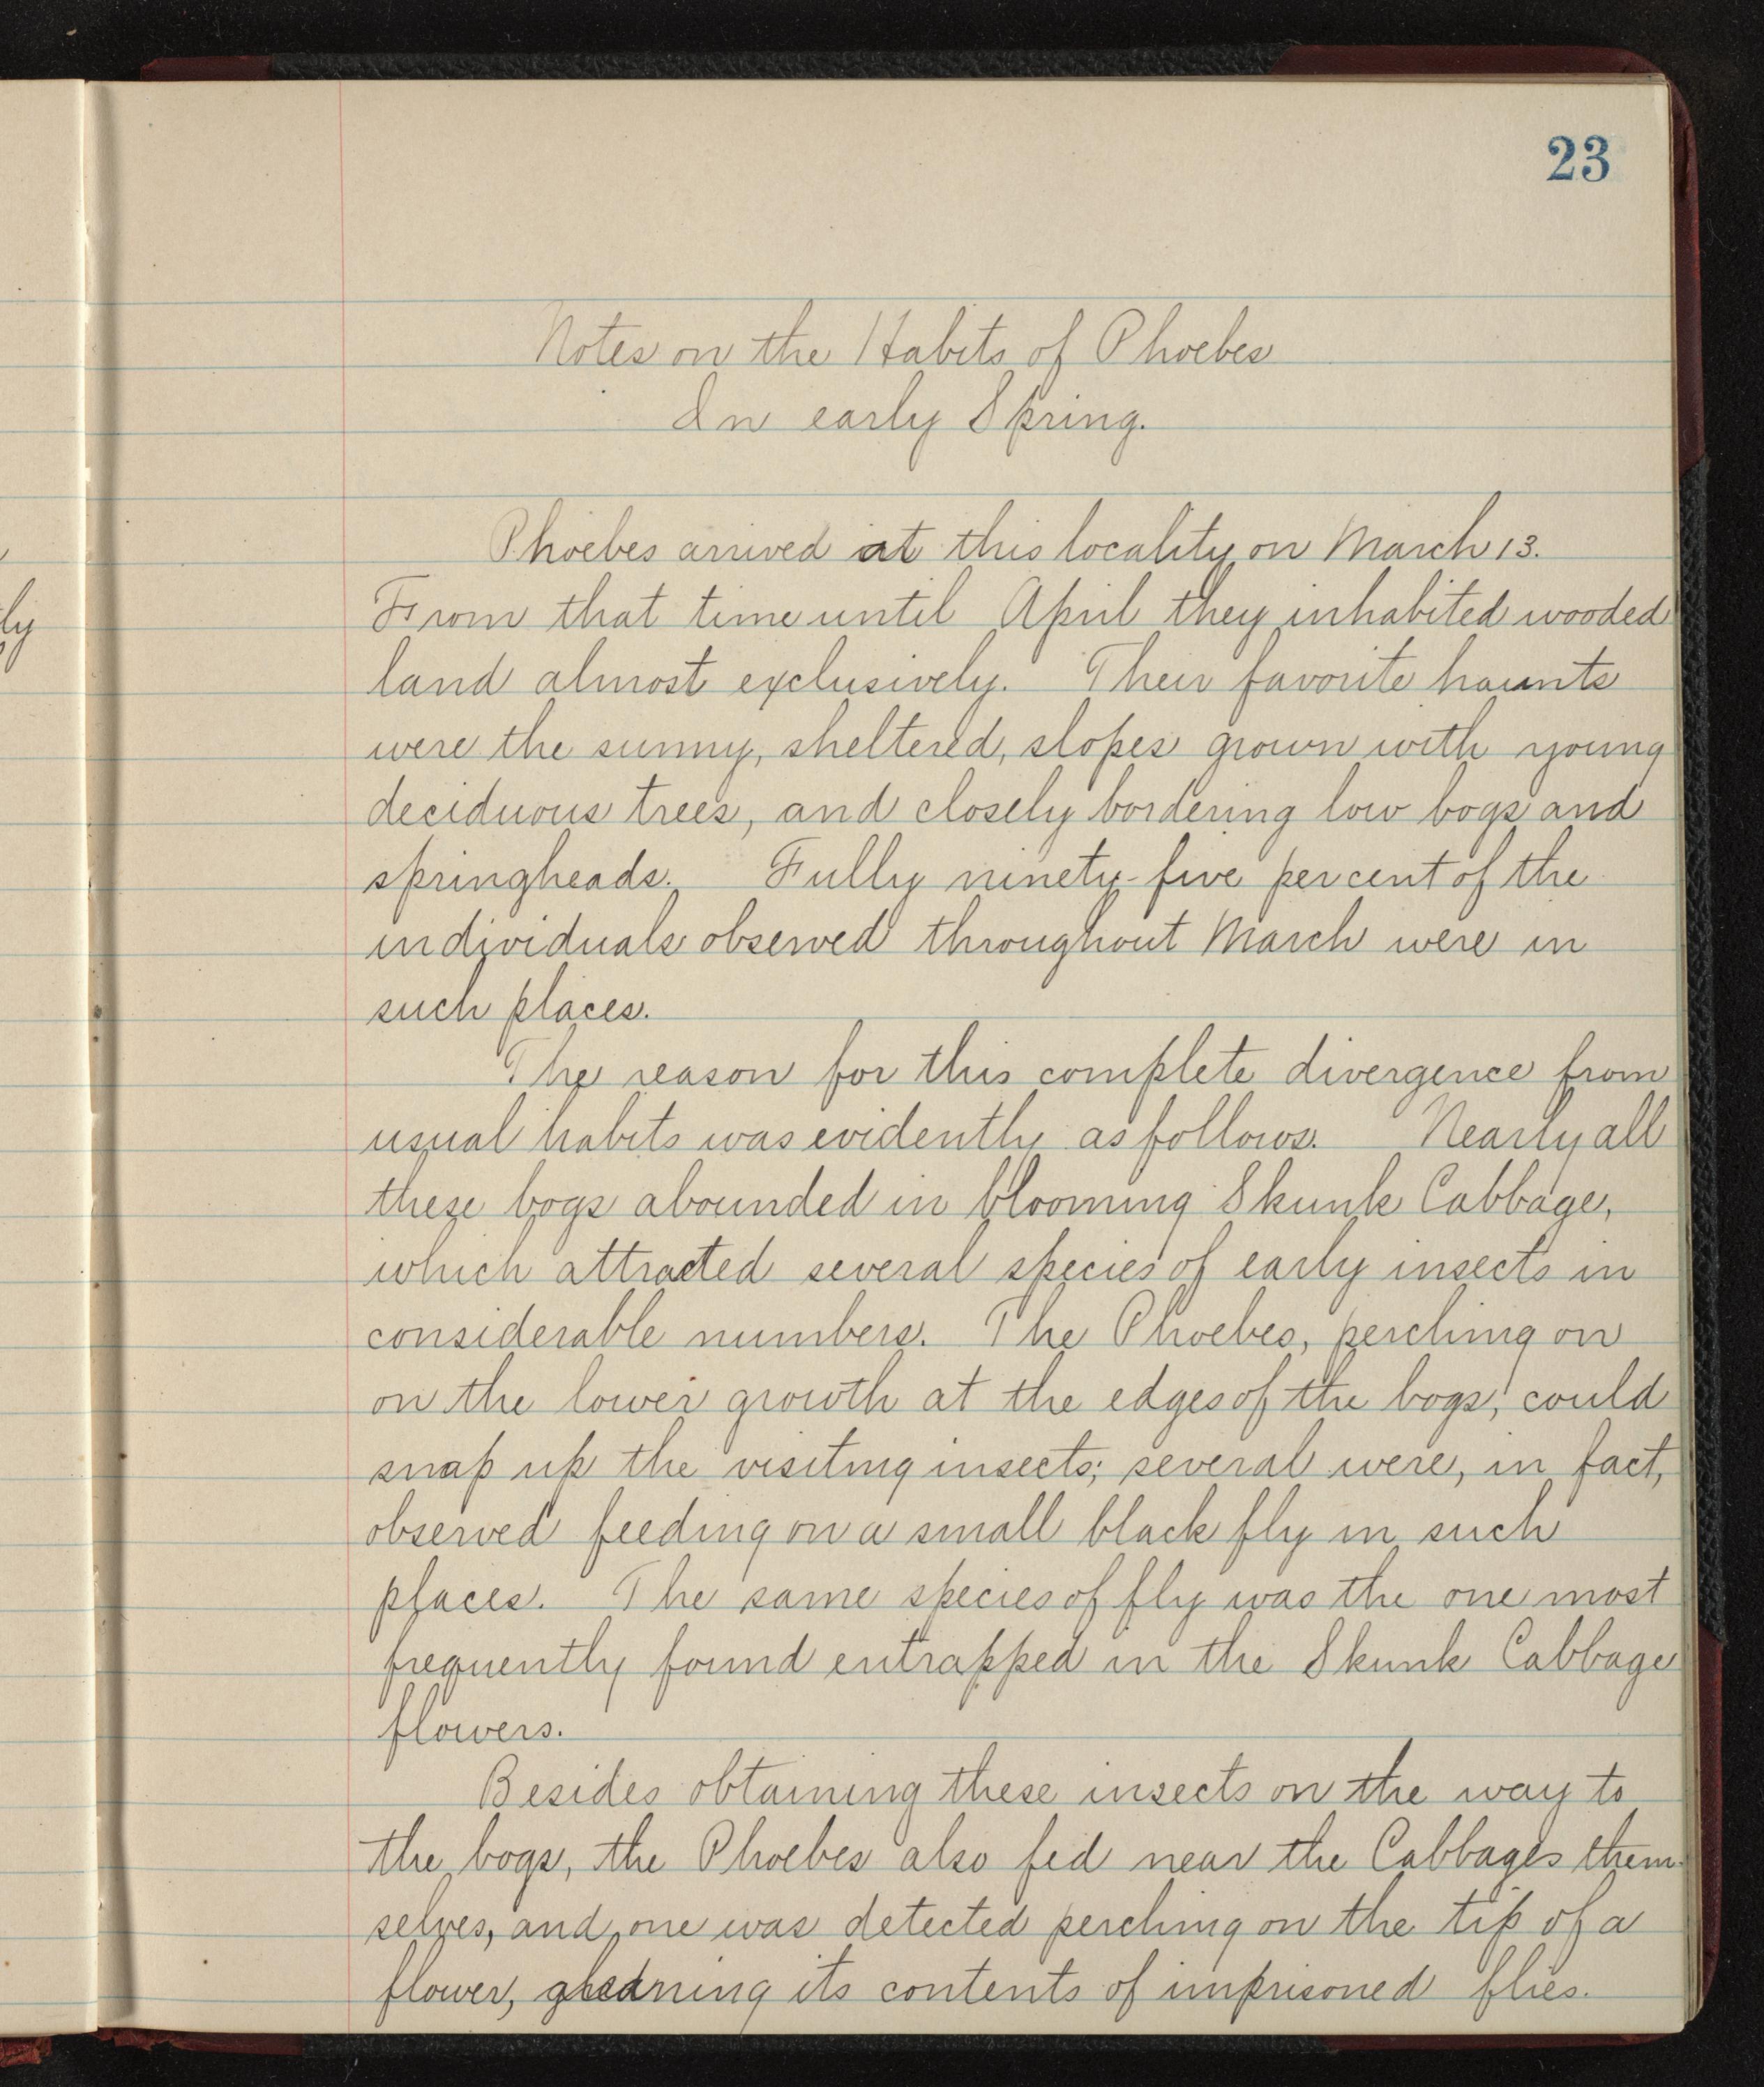 23
Notes on the Habits of Phoebes
In early Spring.
Phoebes arrived at this locality on March 13.
From that time until April they inhabited wooded
land almost exclusively. Their favorite haunts
were the sunny, sheltered, slopes grown with young
deciduous trees, and closely bordering low bogs and
springheads. Fully ninety-five percent of the
individuals observed throughout March were in
such places.
The reason for this complete divergence from
usual habits was evidently as follows. Nearly all
these bogs abounded in blooming Skunk Cabbage,
which attracted several species of early insects in
considerable numbers. The Phoebes, perching on
on the lower growth at the edges of the bogs, could
snap up the visiting insects; several were, in fact,
observed feeding on a small black fly in such
places. The same species of fly was the one most
frequently found entrapped in the Skunk Cabbage
flowers.
Besides obtaining these insects on the way to
the bogs, the Phoebes also fed near the Cabbages them-
selves, and one was detected perching on the tip of a
flower, gleaning its contents of imprisoned flies.
ly